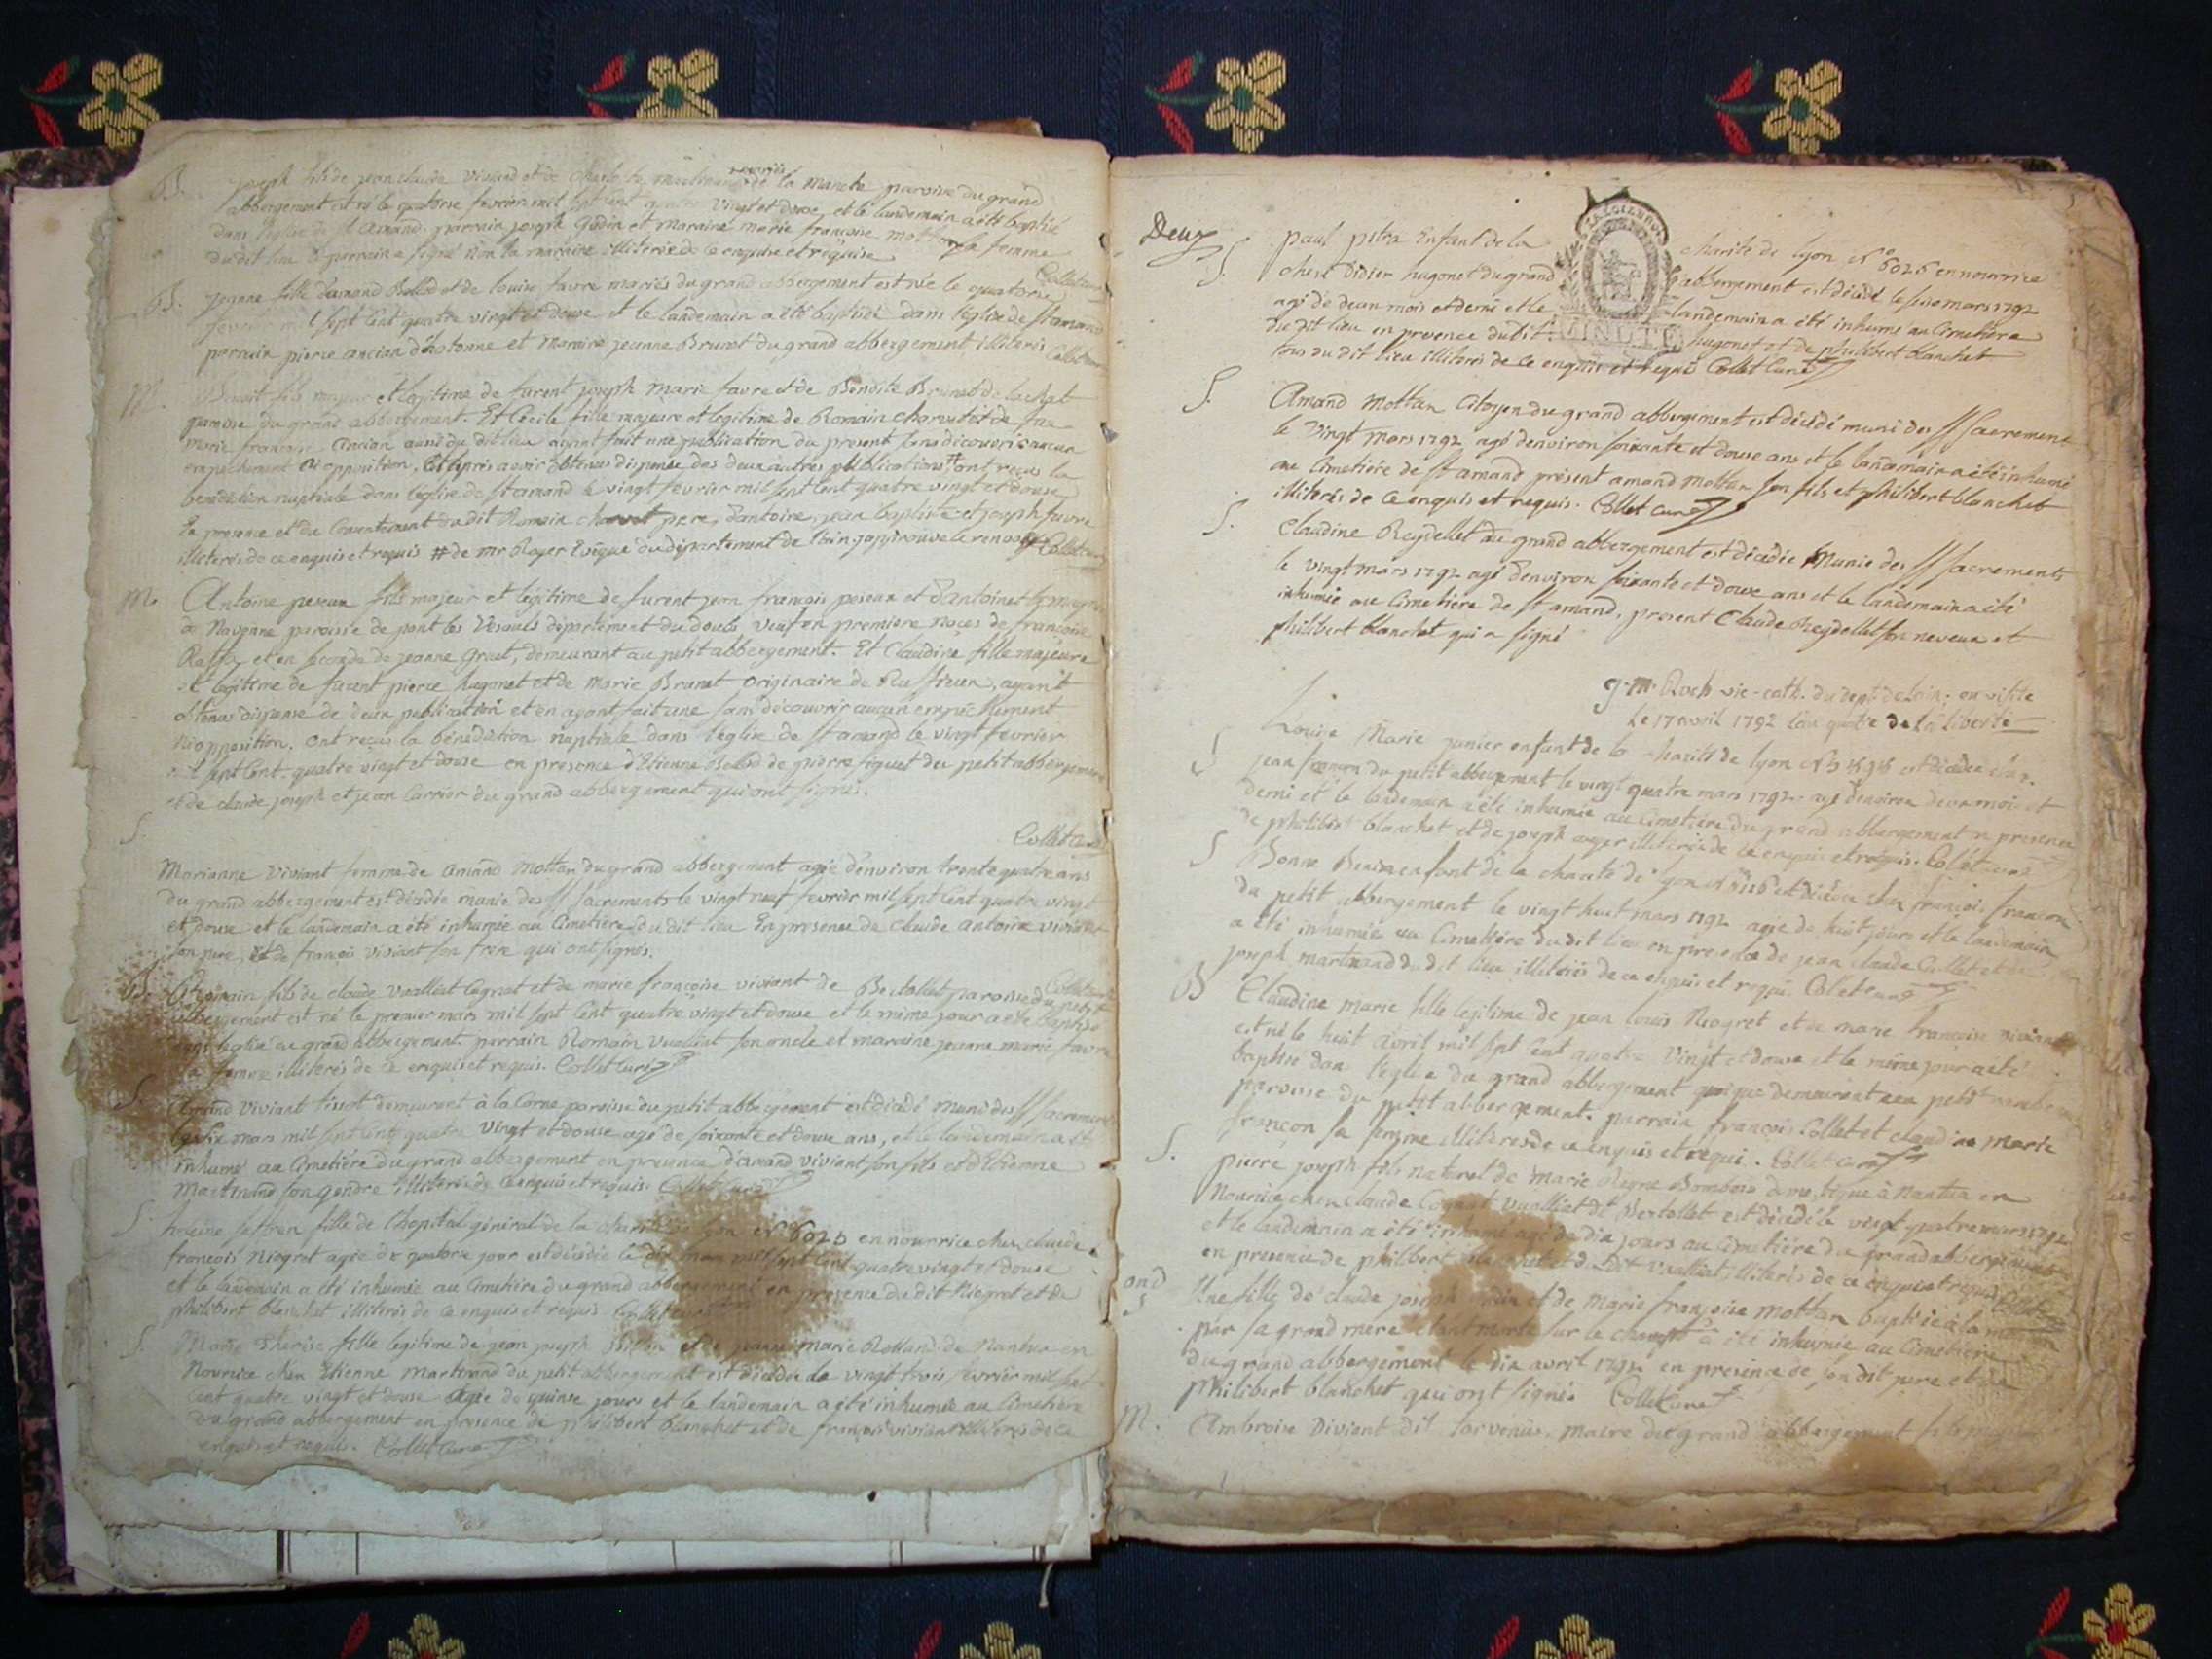 B. joseph fils de jean claude viviand et de Charlotte Martinand mariés de la Manche paroise du grand
abbergement est né le quatorse fevrier mil sept Cent quatre vingt et douse, et le landemain a été baptisé
dans l'eglise de st amand. parrain joseph Godin et Maraine marie françoise mottan sa femme
du dit lieu le parrain a signé non la maraine illiterée de ce enquise et requise
Collet curé
B. jeanne fille d'amand Ballad et de louise favre mariés du grand abbergement est née le quatorse
fevrier mil sept Cent quatre vingt et douse et le landemain a été baptisée dans l'eglise de st amand
parrain pierre ancian d'hotonne et Maraine jeanne Brunet du grand abbergement illiterés Collet curé
M. Benoit fils majeur et legitime de furent joseph Marie favre et de Benoite Brunet de lachat
paroisse du grand abbergement. Et Cecile fille majeure et legitime de Romain charvet et de
marie françoise ancian aussi du dit lieu ayant fait une publication du present sans découvrir aucun
empechement ni opposition, Et après avoir obtenus dispense des deux autres publications # ont reçus la
benediction nuptiale dans l'eglise de st amand le vingt fevrier mil sept Cent quatre vingt et douse
en presence et du Consentement du dit Romain charvet pere, d'antoine, jean baptiste et joseph favre
illiterés de ce enquis et requis # de mr Royer Evêque du departement de l'ain j'approuve le renvoy Collet curé
M. Antoine peseux fils majeur et legitime de furent jean françois peseux et d'antoinette
de Navenne paroisse de pont les Vesouls departement du doubs veuf en premiere noces de françoise
Raffay et en seconde de jeanne Grael, demeurant au petit abbergement. Et Claudine fille majeure
et legitime de furent pierre hugonet et de Marie Brunet originaire de Ruffieux, ayant
obtenus dispense de deux publication et en ayant fait une sans découvrir aucun empechement
ni opposition. ont reçus la bénédiction nuptiale dans l'eglise de st amand le vingt fevrier
mil sept Cent quatre vingt et douse en presence d'Etienne Ballad de pierre siguet du petit abbergement
et de claude joseph et jean Carrier du grand abbergement qui ont signés.
S.
Collet curé
Marianne viviant femme de amand Mottan du grand abbergement agée d'environ trente quatre ans
du grand abbergement est décédée munie des SS sacrements le vingt neuf fevrier mil sept Cent quatre vingt
et douse et le landemain a été inhumée au Cimetière du dit lieu En presence de Claude antoine viviant
son pere, et de françois viviant son frere qui ont signés.
Collet curé
B. Romain fils de claude vuailliat Cognat et de marie françoise viviant de Bertollet paroisse du petit
abbergement est né le premier mars mil sept Cent quatre vingt et douse et le même jour a été baptisé
dans l'eglise du grand abbergement. parrain Romain vuailliat son oncle et maraine jeanne marie favre
sa femme illiterés de ce enquis et requis. Collet curé
S. Amand viviant tissot demeurant à la Corne paroisse du petit abbergement est décédé muni des SS sacrements
le six mars mil sept Cent quatre vingt et douse agé de soixante et douse ans, et le landemain a été
inhumé au Cimetière du grand abbergement en presence d'amand viviant son fils et d'Etienne
Martinand son gendre illiterés de ce enquis et requis. Collet curé
S. fille de l'hopital général de la charité de lyon N° 6025 en nourrice chez claude
françois Niogret agée de quatorse jour est décédée le dix mars mil sept Cent quatre vingt et douse
et le landemain a été inhumée au Cimetière du grand abbergement en presence du dit Niogret et de
philibert blanchet illiterés de ce enquis et requis Collet curé
S. Marie Therese fille legitime de jean joseph et de jeanne marie Rolland de Nantua en
Nourrice chez Etienne Martinand du petit abbergement est décédée le vingt trois fevrier mil sept
Cent quatre vingt et douse agée de quinse jours et le landemain a été inhumée au Cimetière
du grand abbergement en presence de philibert blanchet et de françois viviant illiterés de ce
enquis et requis. Collet curé
Deux
S. paul pitra Enfant de la charité de lyon N° 6026 en nourrice
chez Didier hugonet du grand abbergement est décédé le seise mars 1792
agé de deux mois et demi et le landemain a été inhumé au Cimetière
du dit lieu en presence du dit hugonet et de philibert blanchet
MINUTE
tous du dit lieu illiterés de ce enquis et requis Collet Curé
S. Amand Mottan Citoyen du grand abbergement est décédé muni des SS sacrement
le vingt mars 1792 agé d'environ soixante et douse ans et le landemain a été inhumé
au Cimetière de st amand présent amand mottan son fils et philibert blanchet
illiterés de ce enquis et requis. Collet curé
S. Claudine Reydellet du grand abbergement est décédée Munie des SS sacrements
le vingt mars 1792 agé d'environ soixante et douse ans et le landemain a été
inhumée au Cimetière de st amand, present Claude Reydellet son neveux et
philibert blanchet qui a signé
J. M. Roch vic-cath. du dept. de l'ain: en visite
le 17 avril 1792 l'an quatre de la liberté
S Louise Marie junier enfant de la charité de lyon est décédée chez
jean françon du petit abbergement le vingt quatre mars 1792 agé d'environ deux mois et
demi et le landemain a été inhumée au Cimetière du grand abbergement en presence
de philibert blanchet et de joseph auger illiterés de ce enquis et requis. Colet curé
S Bonne enfant de la charité de lyon est décédée chez françois françon
du petit abbergement le vingt huit mars 1792 agée de huit jours et le landemain
a été inhumée au Cimetière du dit lieu en presence de jean claude Collet et de
joseph martinand du dit lieu illiterés de ce enquis et requis Colet curé
B Claudine marie fille legitime de jean louis Niogret et de marie françoise viviand
est né le huit avril mil sept Cent quatre vingt et douse et le même jour a été
baptisée dans l'eglise du grand abbergement quoique demeurant au petit
paroisse du petit abbergement. parrain françois Collet et claudine marie
françon sa femme illiterés de ce enquis et requis. Collet curé
S. pierre joseph fils naturel de Marie Reyne Bombois domestique à Nantua en
Nourrice chez claude Cognat vuailliat de Bertollet est décédé le vingt quatre mars 1792
et le landemain a été inhumé agé de dix jours au Cimetière du grand abbergement
en presence de philibert blanchet et du dit vuailliat illiterés de ce enquis et requis Collet curé
ond
S Une fille de claude joseph Godin et de Marie françoise Mottan baptisée à la maison
par sa grand mere étant morte sur le champt a été inhumée au Cimetière
du grand abbergement le dix avril 1792 en presence de son dit pere et de
philibert blanchet qui ont signés Collet curé
M. Ambroise Viviant dit Maire du grand abbergement fils